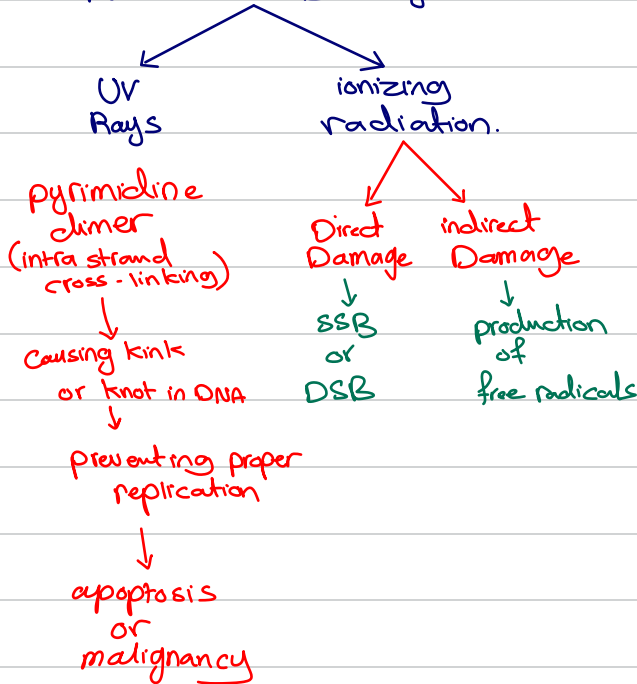 UV
Rays
ionizing
radiation.
pyrimidine
dimer
(intra strand
cross-linking)
causing kink
or knot in DNA
preventing proper
replication
apoptosis
or
malignancy
Direct
Damage
SSB
or
DSB
indirect
Damage
production
of
free radicals